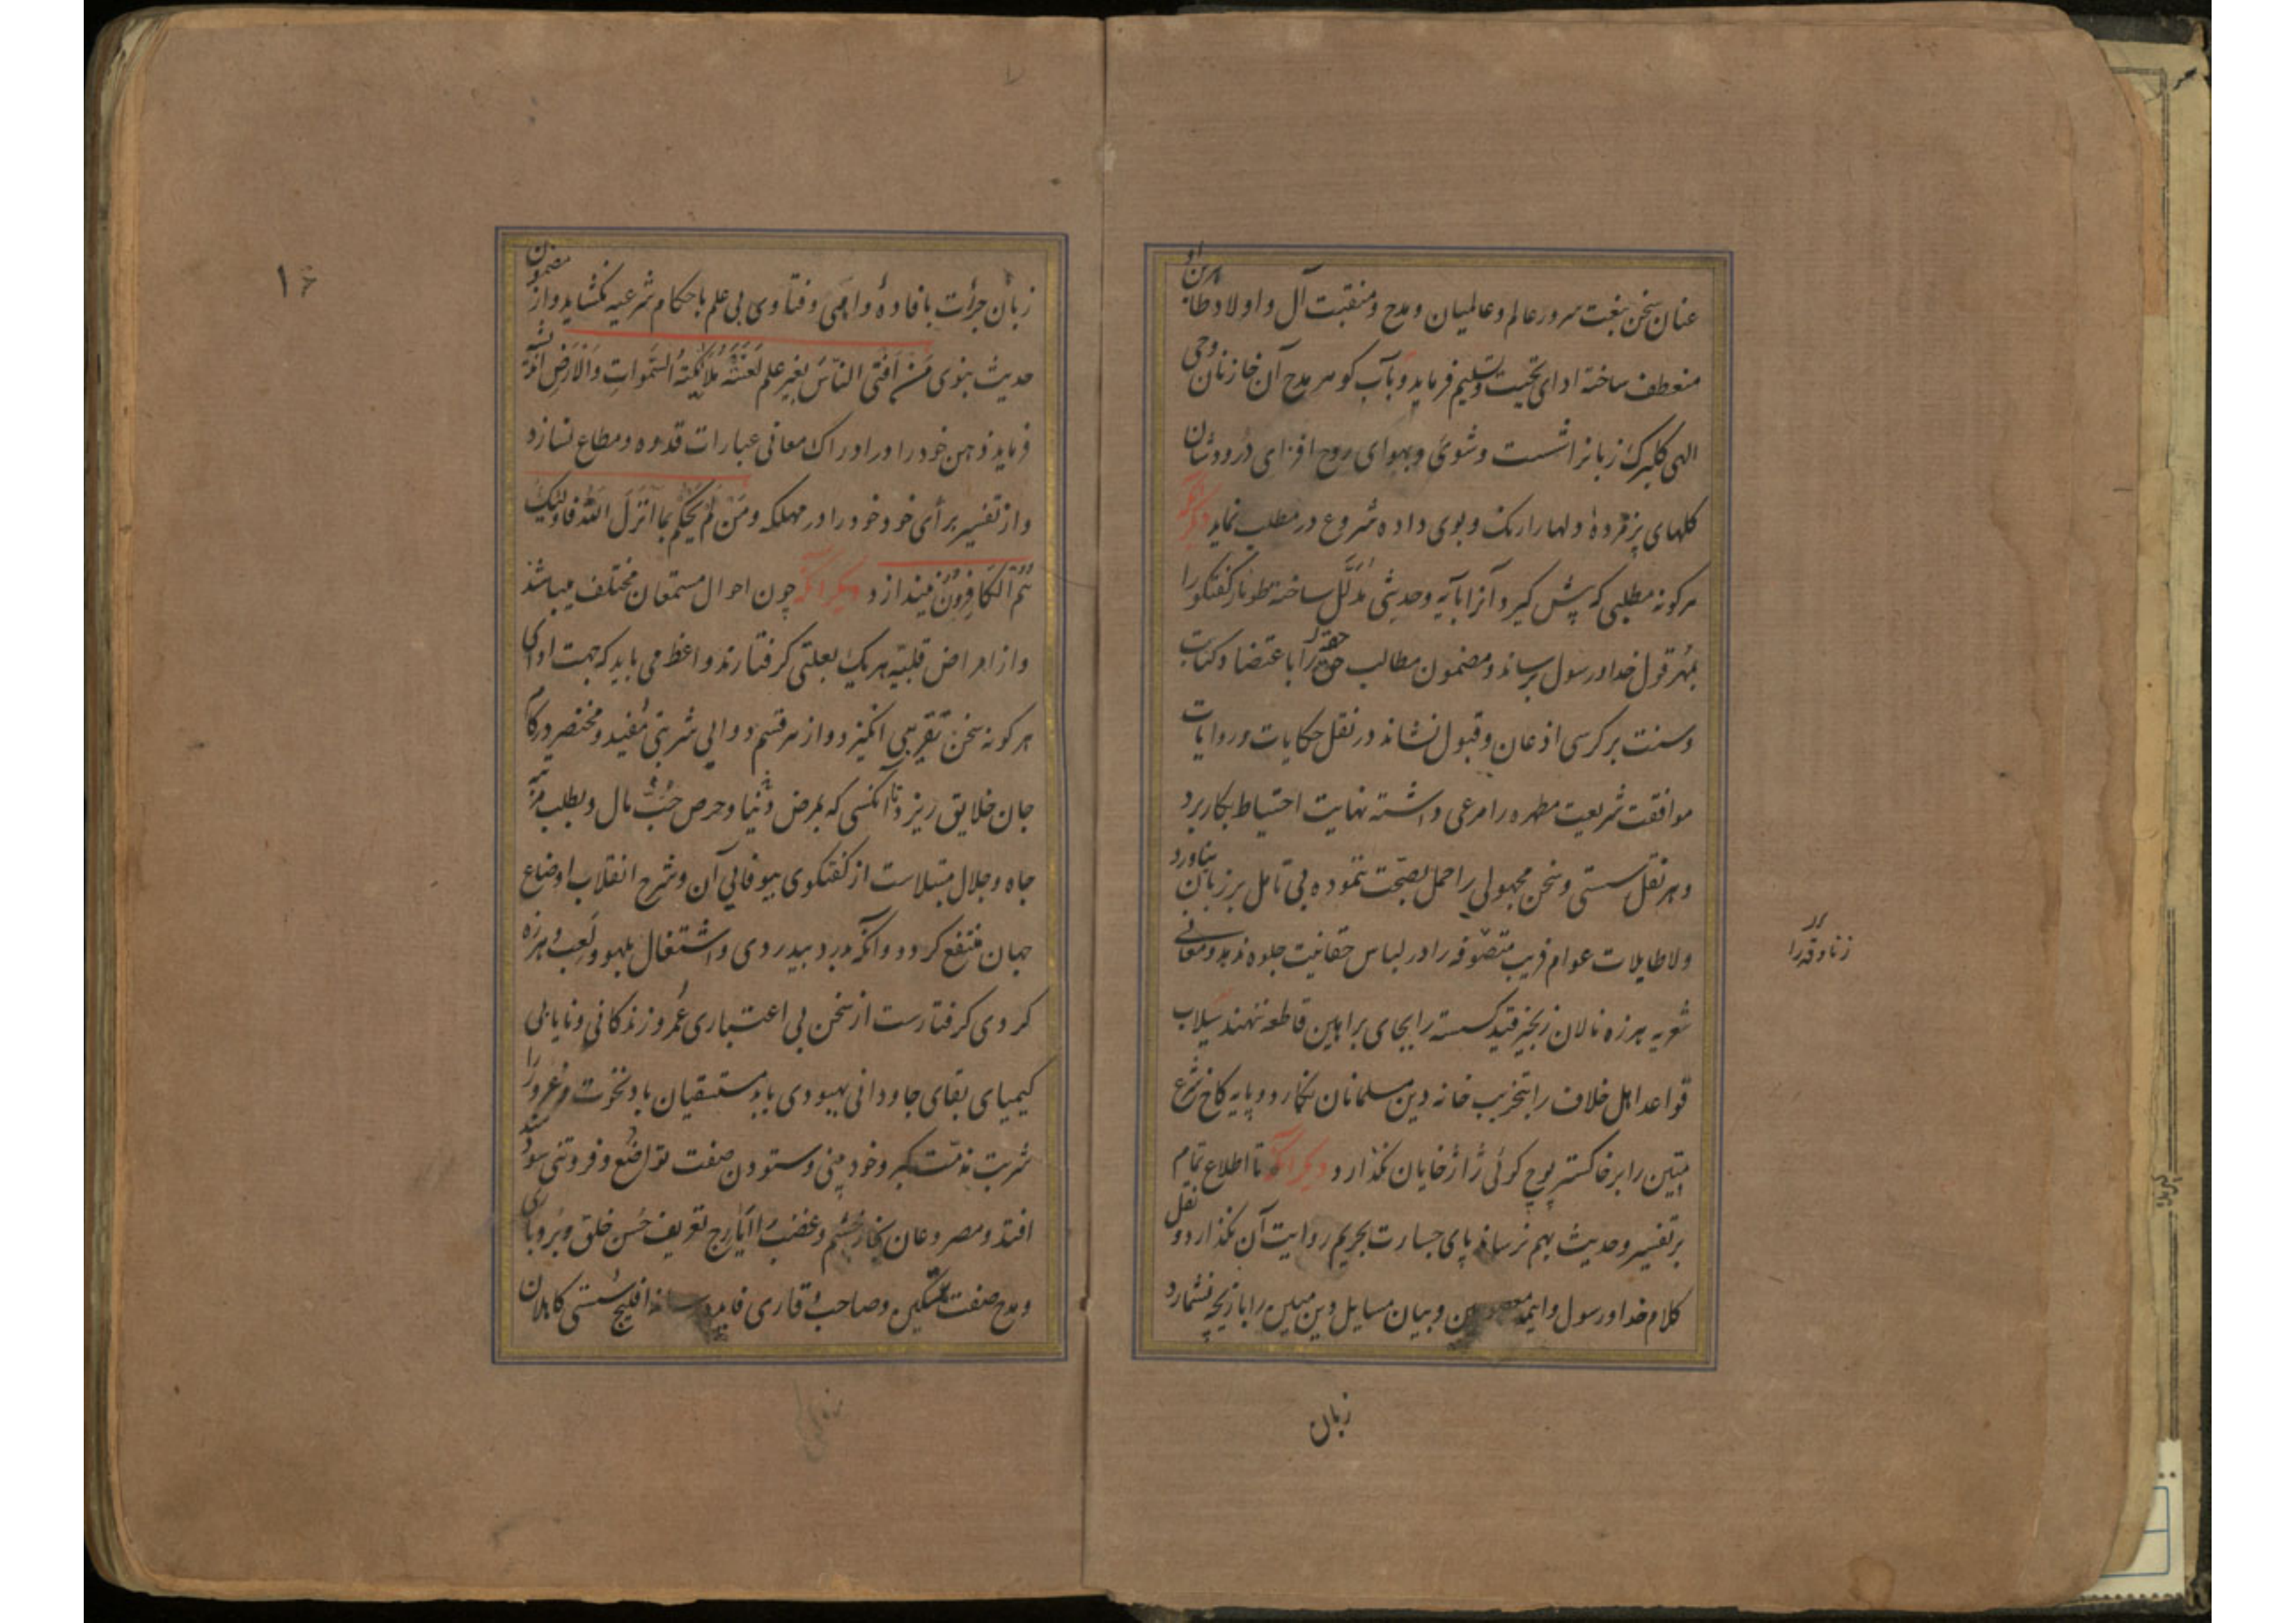 عنان سخن بنعت سرور عالم و عالمیان و مدح و منقبت آل و اولاد طاهرین او
منعطف ساخته ادای تحیت و تسلیم فرماید و بآب گوهر مدح آن خازنان وحی
الهی گلبرگ زبانرا شست و شوی و بهوای روح افزای درودشان
گلهای پژمردهٔ دلها را رنگ و بوی داده شروع در مطلب نماید دیگر آنکه
هر گونه مطلبی که پیش گیرد آنرا بآیه و حدیثی مدلّل ساخته طومار گفتگو را
بمُهر قول خدا و رسول برساند و مضمون مطالب حقه را باعتضاد کتاب
و سنت بر کرسی اذعان و قبول نشاند در نقل حکایات و روایات
موافقت شریعت مطهره را مرعی داشته نهایت احتیاط بکار برد
و هر نقل سستی و سخن مجهولی را حمل بصحت ننموده بی تامل بر زبان نیاورد
و لاطایلات عوام فریب متصوّفه را در لباس حقانیت جلوه ندهد و معانی
شعریه هرزه نالان زنجیر قید گسسته را بجای براهین قاطعه ننهند سیلاب
قواعد اهل خلاف را بتخریب خانه دین مسلمانان نگمارد و پایه کاخ شرع
متین را بر خاکستر پوچ گوئی ژاژخایان نگذارد دیگر آنکه تا اطلاع تمام
بر تفسیر و حدیث بهم نرساند پای جسارت بحریم روایت آن نگذارد و نقل
کلام خدا و رسول و ایمه معصومین و بیان مسایل دین مبین را بازیچه نشمارد
زنادقه را
زبان
۱۶
زبان جرأت بافادهٔ واهی و فتاوی بی علم باحکام شرعیه نگشاید و از مضمون
حدیث نبوی مَنْ اَفتَی النّاسَ بِغَیرِ علم لَعَنَتْهُ مَلَائِکَتُه السَّمواتِ وَالاَرضِ اندیشه
فرماید ذهن خود را در ادراک معانی عبارات قدوه و مطاع نسازد
و از تفسیر برأی خود خود را در مهلکه وَمَنْ لَمْ یَحْکُم بِما اَنْزَلَ اللّه فَاولئِکَ
هُمُ الکَافِرُونْ نیندازد دیگر آنکه چون احوال مستمعان مختلف میباشد
و از امراض قلبیّه هر یک بعلتی گرفتارند واعظ می باید که جهت ادای
هر گونه سخن تقریبی انگیزد و از هر قسم دوایی شربتی مُفید و مختصر در کام
جان خلایق ریزد تا آنکسی که بمرض دُنیا و حرص حُبّ مال و بطلب مرتبه
جاه و جلال مبتلاست از گفتگوی بیوفایی آن و شرح انقلاب اوضاع
جهان منتفع گردد و آنکه بدرد بیدردی و اشتغال بلهو و لعب و هرزه
گردی گرفتارست از سخن بی اعتباری عُمر و زندگانی و نایابی
کیمیای بقای جاودانی بهبودی یابد مستسقیان باد نخوت و غرور را
شربت مذمّت کبر و خود بینی و ستودن صفت تواضُع و فروتنی سودمند
افتد و مصروعان بخار خشم و غضب را ایارج تعریف حُسن خلق و بُردباری
و مدح صفت تمکین و صاحب وقاری فایده رساند افلیج سُستی کاهلان